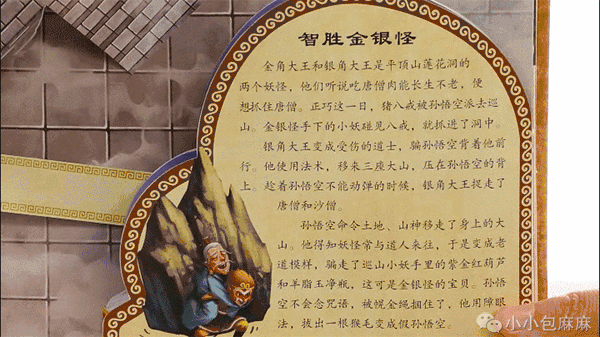 智胜金银怪
金角大王和银角大王是平顶山莲花洞的
两个妖怪，他们听说吃唐僧肉能长生不老，便
想抓住唐僧。正巧这一日，猪八戒被孙悟空派去巡
山。金银怪手下的小妖碰见八戒，就抓进了洞中。
银角大王变成受伤的道士，骗孙悟空背着他前
行。他使用法术，移来三座大山，压在孙悟空的背
上。趁着孙悟空不能动弹的时候，银角大王捉走了
唐僧和沙僧。
孙悟空命令土地、山神移走了身上的大
山。他得知妖怪常与道人来往，于是变成老
道模样，骗走了巡山小妖手里的紫金红葫芦
和羊脂玉净瓶，这可是金银怪的宝贝。孙悟
空不会念咒语，被幌金绳捆住了，他用障眼
法，拔出一根猴毛变成假孙悟空。
小小包麻麻